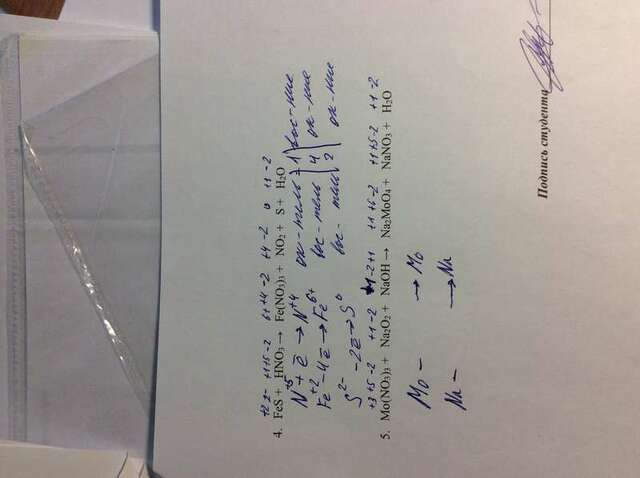 +2 2- +1+5 -2 6+ +4 -2 +4 -2 0 +1 -2
4. FeS + HNO₃ → Fe(NO₃)₃ + NO₂ + S + H₂O
N⁺⁵ + ē → N⁺⁴ ок-тель 1 вос-ние
Fe⁺² - 4ē → Fe⁶⁺ вос-тель 4 ок-ние
S²⁻ - 2ē → S⁰ вос-тель 2 ок-ние
+3 +5 -2 +1 -2 -2 +1 +1 +6 -2 +1 +5 -2 +1 -2
5. Mo(NO₃)₃ + Na₂O₂ + NaOH → Na₂MoO₄ + NaNO₃ + H₂O
Mo - → Mo
Na - → Na
Подпись студента